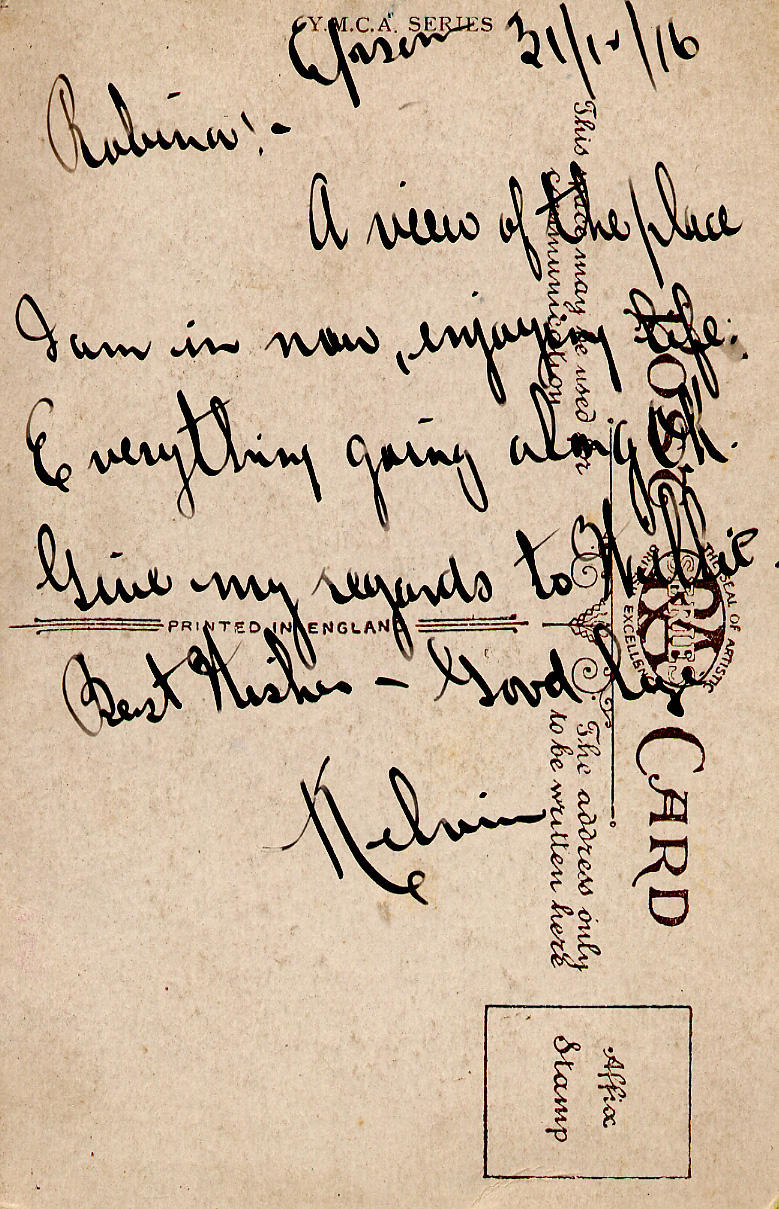 Y.M.C.A. SERIES
Epsom 31/12/16
Robina! -
A view of the place
I am in now, enjoying life.
Everything going along Ok.
Give my regards to
Best Wishes - Good
Kelvin
PRINTED IN ENGLAND
This space may be used for
communication
POST CARD
THE SEAL OF ARTISTIC
EXCELLENCE
SERIES
The address only
to be written here
Affix
Stamp